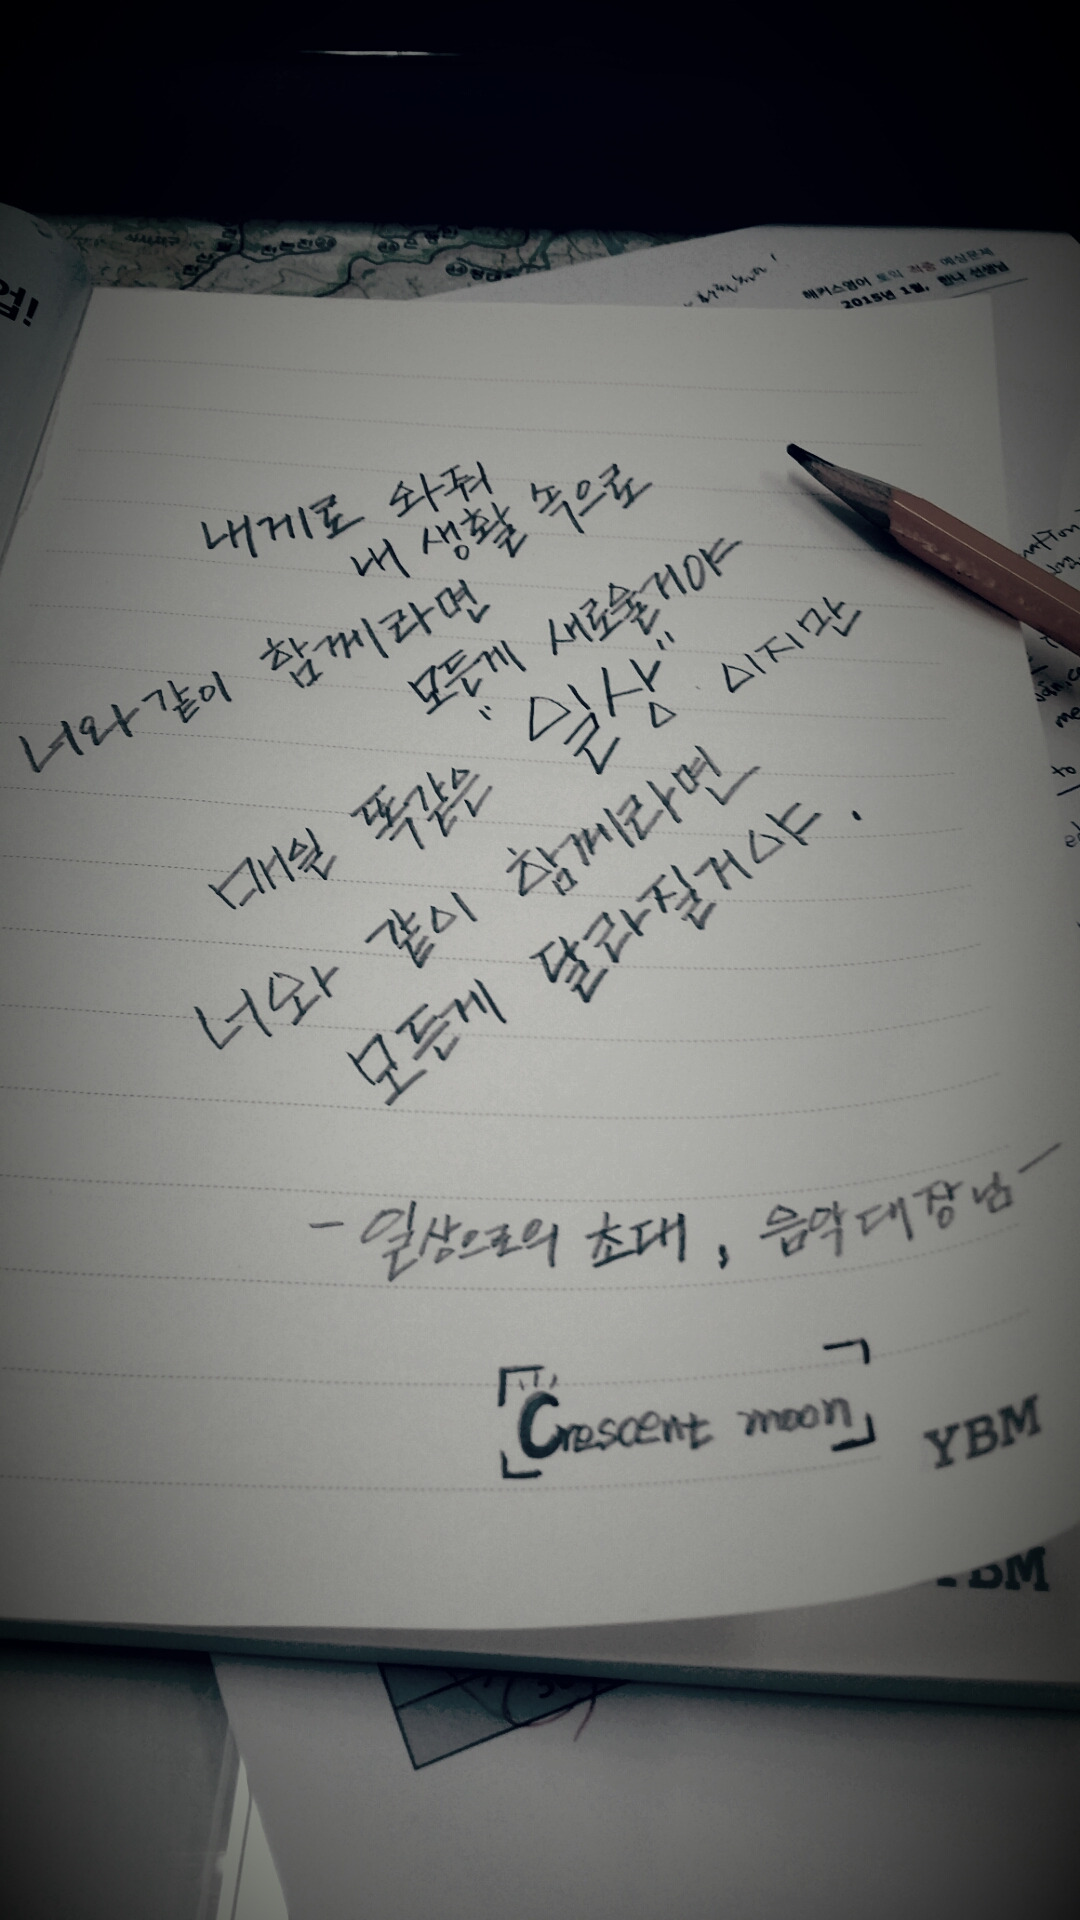 해커스영어 토익 적중 예상문제
2015년 1월, 한나 선생님
내게로 와줘
내 생활 속으로
너와 같이 함께라면
모든게 새로울거야
매일 똑같은 "일상" 이지만
너와 같이 함께라면
모든게 달라질거야.
- 일상으로의 초대, 음악대장님 -
Crescent moon
YBM
YBM